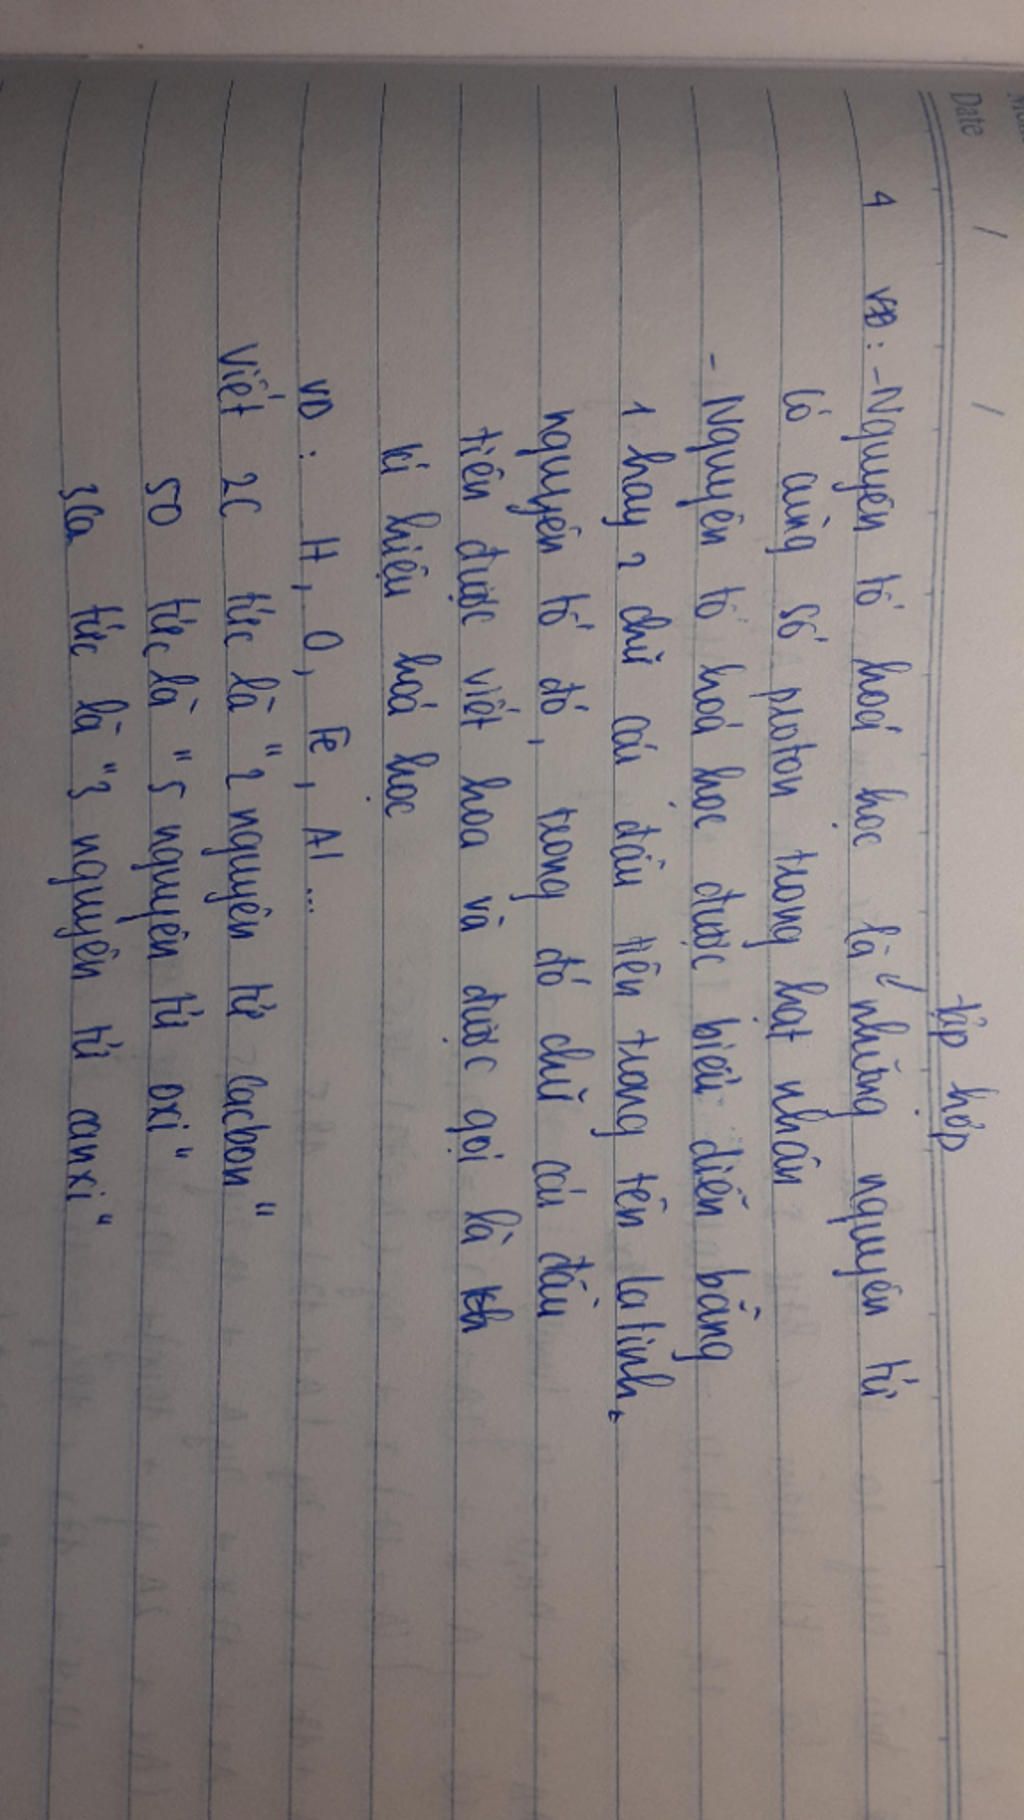 Date / /
tập hợp
4 VD: - Nguyên tố hoá học là những nguyên tử
có cùng số proton trong hạt nhân
- Nguyên tố hoá học được biểu diễn bằng
1 hay 2 chữ cái đầu tiên trong tên latinh,
nguyên tố đó, trong đó chữ cái đầu
tiên được viết hoa và được gọi là
kí hiệu hoá học
VD: H, O, Fe, Al...
Viết 2C tức là "2 nguyên tử cacbon"
5O tức là "5 nguyên tử oxi"
3Ca tức là "3 nguyên tử canxi"